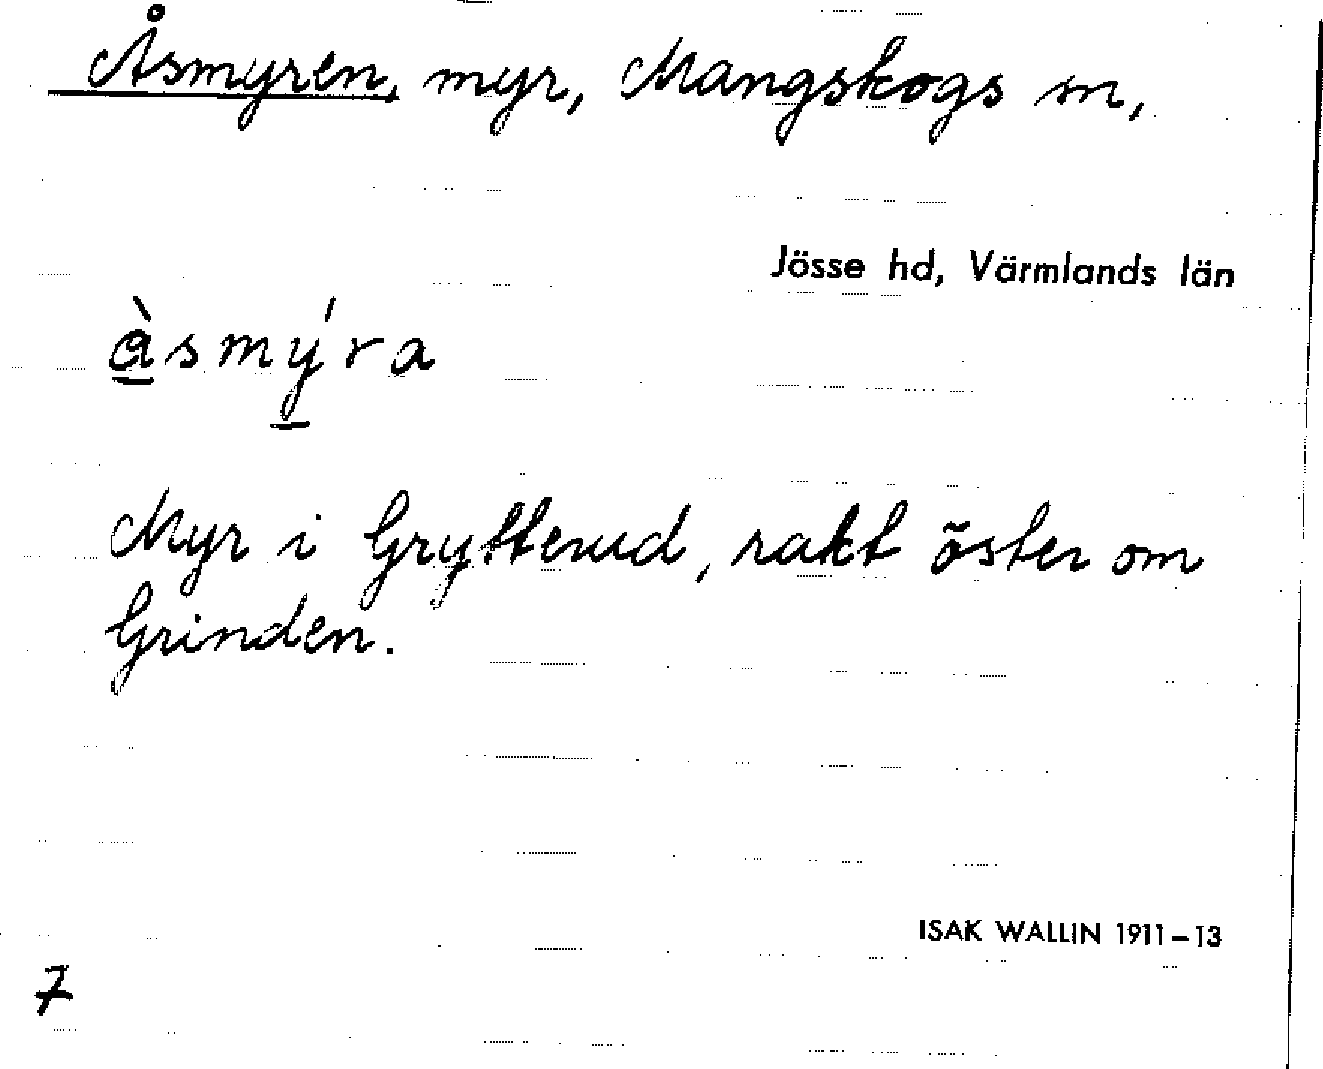 Åsmyren, myr, Mangskogs sn,
Jösse hd, Värmlands län
å̱̀smý̱ra
Myr i Grytterud, rakt öster om
Grinden.
ISAK WALLIN 1911–13
7